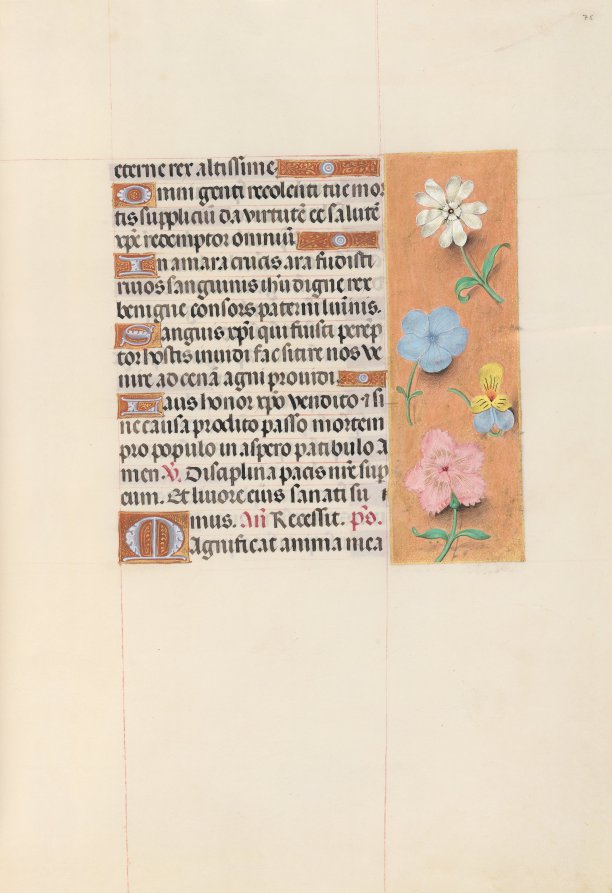 75
eterne rex altissime.
Omni genti recolenti tue mor
tis suppliciū da virtutē et salutē
xp̄e redemptor omniuī
In amara crucis ara fudisti
rivos sanguinis ih̄u digne rex
benigne consors paterni luīnis.
Sanguis xp̄i qui fuisti perēp
tor hostis mundi fac sitire nos ve
nire ad cenā agni providi.
Laus honor xp̄o vendito ⁊ si
ne causa prodito passo mortem
pro populo in aspero patibulo A
men. V. Disciplina pacis nr̄e sup
eum. Et livore eius sanati su
mus. Añ Recessit. p̄s.
Magnificat anima mea